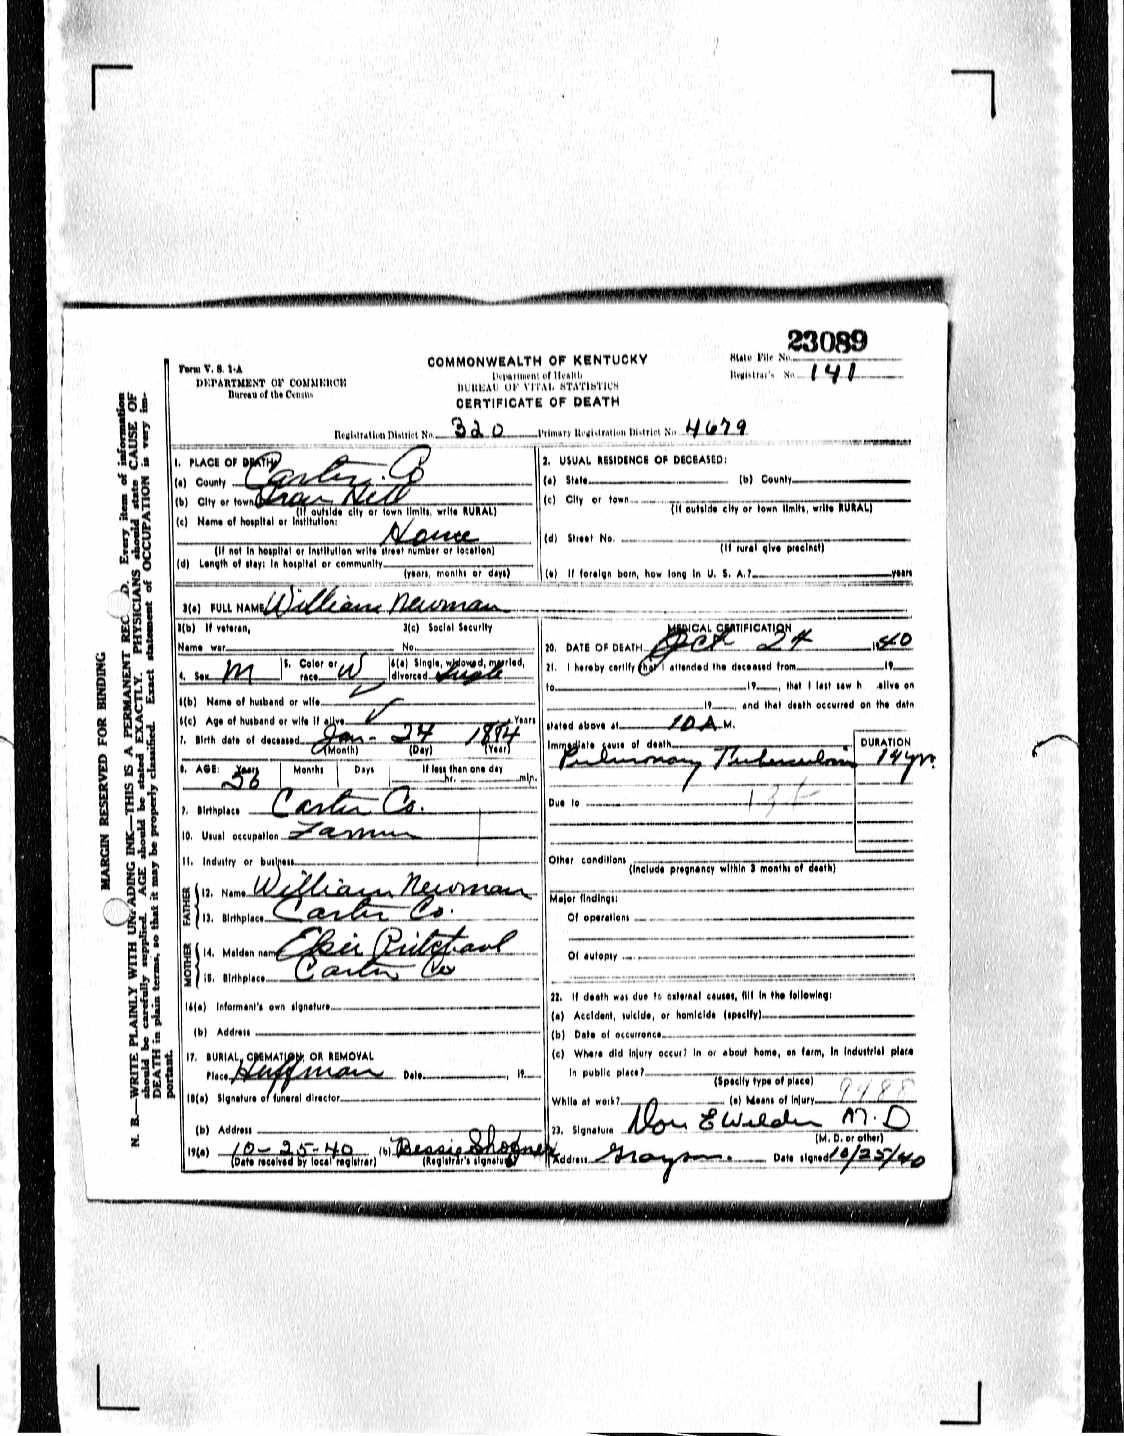 23089
Form V. S. 1-A
DEPARTMENT OF COMMERCE
Bureau of the Census
COMMONWEALTH OF KENTUCKY
Department of Health
BUREAU OF VITAL STATISTICS
CERTIFICATE OF DEATH
State File No.
Registrar's No. 141
Registration District No. 320 Primary Registration District No. 4679
MARGIN RESERVED FOR BINDING
N. B.—WRITE PLAINLY WITH UNFADING INK—THIS IS A PERMANENT REC D. Every item of information
should be carefully supplied. AGE should be stated EXACTLY. PHYSICIANS should state CAUSE OF
DEATH in plain terms, so that it may be properly classified. Exact statement of OCCUPATION is very im-
portant.
1. PLACE OF DEATH
(a) County Carter Co
(b) City or town Hill
(If outside city or town limits, write RURAL)
(c) Name of hospital or institution:
Home
(If not in hospital or institution write street number or location)
(d) Length of stay: In hospital or community
(years, months or days)
2. USUAL RESIDENCE OF DECEASED:
(a) State (b) County
(c) City or town
(If outside city or town limits, write RURAL)
(d) Street No.
(If rural give precinct)
(e) If foreign born, how long in U. S. A.? years
3(a) FULL NAME William Newman
3(b) If veteran, 3(c) Social Security
Name war No.
4. Sex M 5. Color or race W 6(a) Single, widowed, married, divorced Single
6(b) Name of husband or wife
6(c) Age of husband or wife if alive Years
7. Birth date of deceased Jan- 24 1884
(Month) (Day) (Year)
8. AGE: Years Months Days If less than one day
56 hr. min.
9. Birthplace Carter Co.
10. Usual occupation Farmer
11. Industry or business
FATHER
12. Name William Newman
13. Birthplace Carter Co.
MOTHER
14. Maiden name
15. Birthplace Carter Co
16(a) Informant's own signature
(b) Address
17. BURIAL, CREMATION, OR REMOVAL
Place Huffman Date , 19
18(a) Signature of funeral director
(b) Address
19(a) 10-25-40 (b) Bessie
(Date received by local registrar) (Registrar's signature)
MEDICAL CERTIFICATION
20. DATE OF DEATH Oct 24 1940
21. I hereby certify that I attended the deceased from 19
to 19 , that I last saw h alive on
19 , and that death occurred on the date
stated above at 10 A M.
Immediate cause of death DURATION
Pulmonary Tuberculosis 14 yr.
Due to
Other conditions
(Include pregnancy within 3 months of death)
Major findings:
Of operations
Of autopsy
22. If death was due to external causes, fill in the following:
(a) Accident, suicide, or homicide (specify)
(b) Date of occurrence
(c) Where did injury occur? In or about home, on farm, in industrial place
in public place?
(Specify type of place)
While at work? (e) Means of injury
23. Signature Don E Wilder M. D
(M. D. or other)
Address Grayson. Date signed 10/25/40